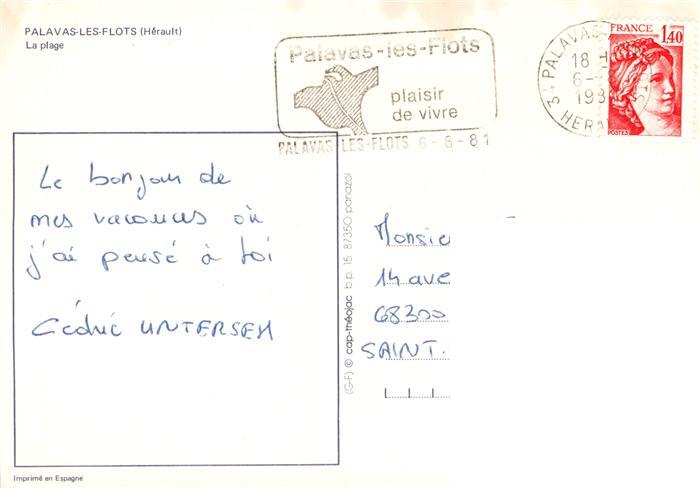 PALAVAS-LES-FLOTS (Hérault)
La plage
Palavas-les-Flots
plaisir
de vivre
PALAVAS-LES-FLOTS 6-8-81
34 PALAVAS
18 H
6-
198
HERA
FRANCE
1,40
POSTES
Le bonjour de
mes vacances où
j'ai pensé à toi
Cédric UNTERSEH
(G-F) © cap-théojac b.p. 15 87350 panazol
Monsie
14 ave
68300
SAINT.
Imprimé en Espagne